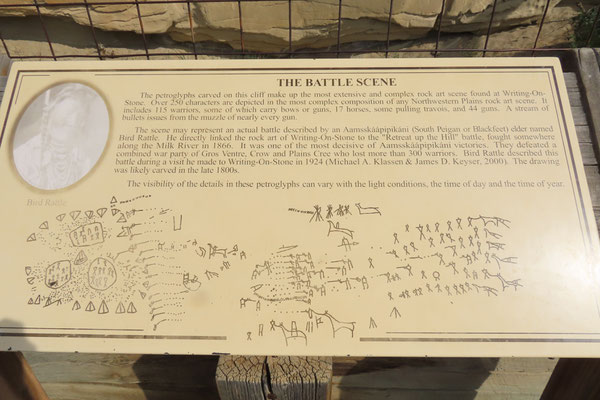 THE BATTLE SCENE
The petroglyphs carved on this cliff make up the most extensive and complex rock art scene found at Writing-On-
Stone. Over 250 characters are depicted in the most complex composition of any Northwestern Plains rock art scene. It
includes 115 warriors, some of which carry bows or guns, 17 horses, some pulling travois, and 44 guns. A stream of
bullets issues from the muzzle of nearly every gun.
The scene may represent an actual battle described by an Aamsskáápipikáni (South Peigan or Blackfeet) elder named
Bird Rattle. He directly linked the rock art of Writing-On-Stone to the "Retreat up the Hill" battle, fought somewhere
along the Milk River in 1866. It was one of the most decisive of Aamsskáápipikáni victories. They defeated a
combined war party of Gros Ventre, Crow and Plains Cree who lost more than 300 warriors. Bird Rattle described this
battle during a visit he made to Writing-On-Stone in 1924 (Michael A. Klassen & James D. Keyser, 2000). The drawing
was likely carved in the late 1800s.
The visibility of the details in these petroglyphs can vary with the light conditions, the time of day and the time of year.
Bird Rattle